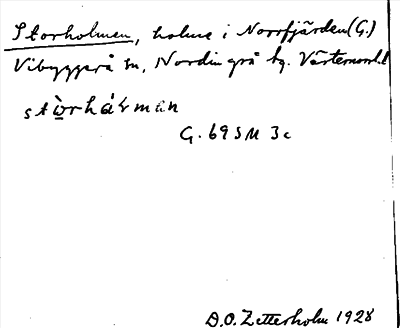 Storholmen, holme i Norrfjärden (G.)
Vibyggerå sn, Nordingrå tg. Västernorrl. l
stòrhálman
G. 69 SM 3c
D.O. Zetterholm 1928